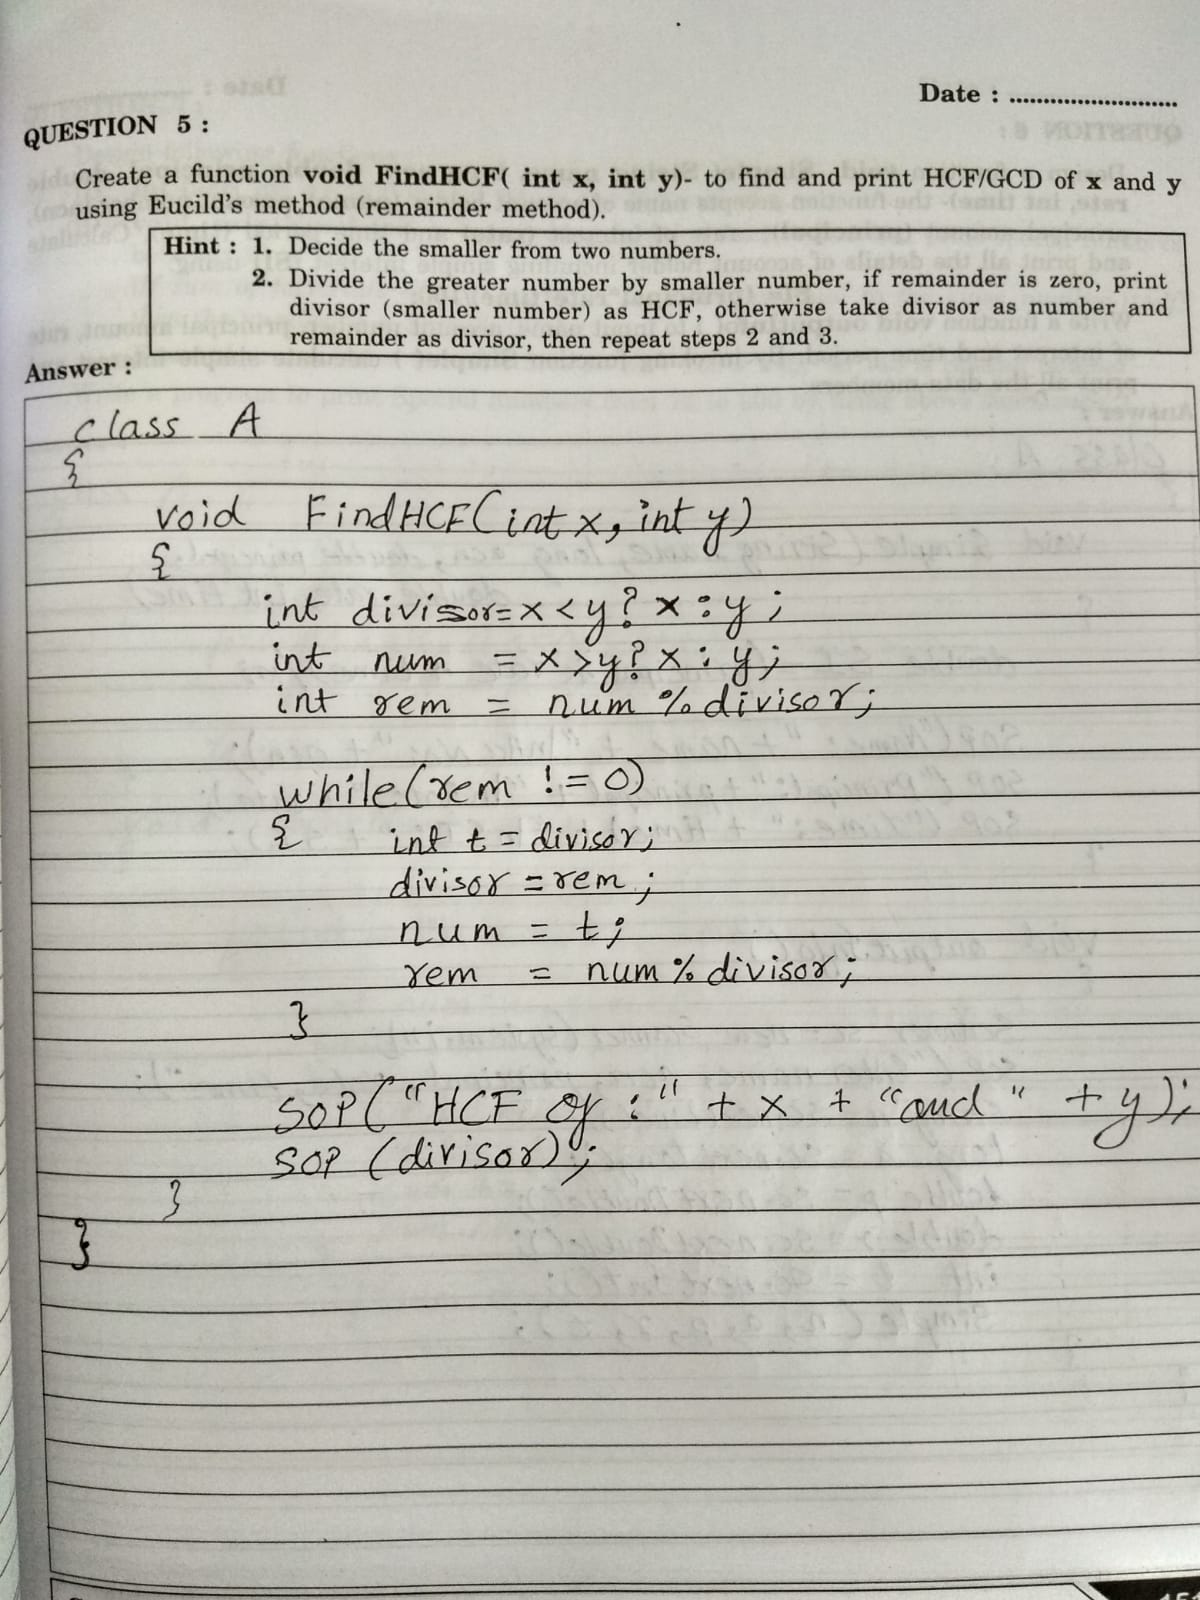 Date : ..........................
QUESTION 5 :
Create a function void FindHCF( int x, int y)- to find and print HCF/GCD of x and y
using Eucild's method (remainder method).
Hint : 1. Decide the smaller from two numbers.
2. Divide the greater number by smaller number, if remainder is zero, print
divisor (smaller number) as HCF, otherwise take divisor as number and
remainder as divisor, then repeat steps 2 and 3.
Answer :
class A
{
void FindHCF(int x, int y)
{
int divisor=x<y? x:y;
int num = x>y? x:y;
int rem = num % divisor;
while(rem != 0)
{ int t = divisor;
divisor = rem;
num = t;
rem = num % divisor;
}
SOP("HCF of :" + x + "and " + y);
SOP (divisor);
}
}